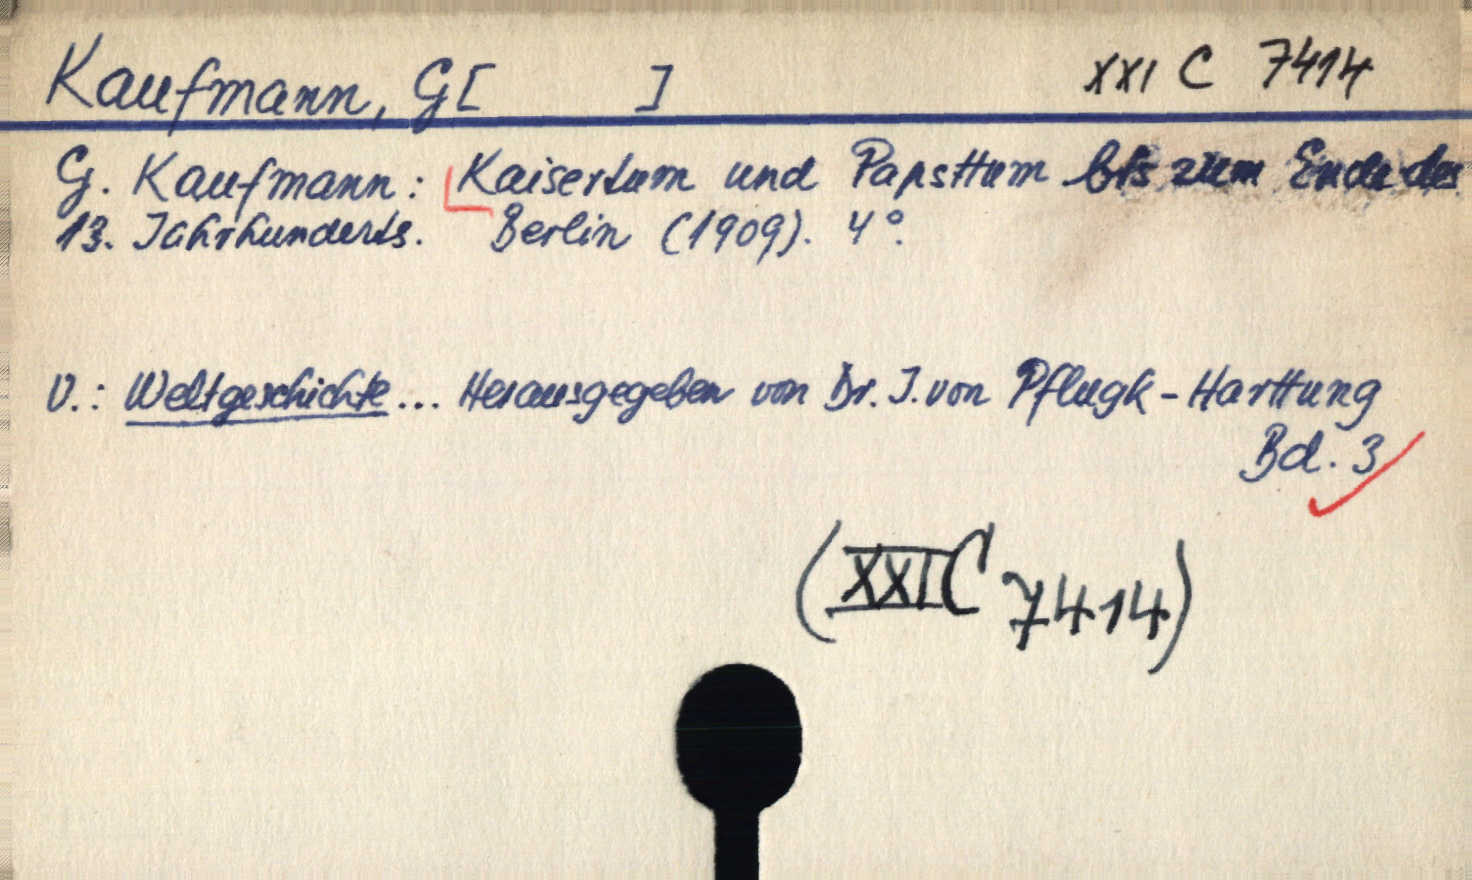 Kaufmann, G[ ] XXI C 7414
G. Kaufmann: Kaisertum und Papsttum bis zum Ende des
13. Jahrhunderts. Berlin (1909). 4°.
V.: Weltgeschichte... Herausgegeben von Dr. J. von Pflugk-Harttung
Bd. 3
(XXI C 7414)